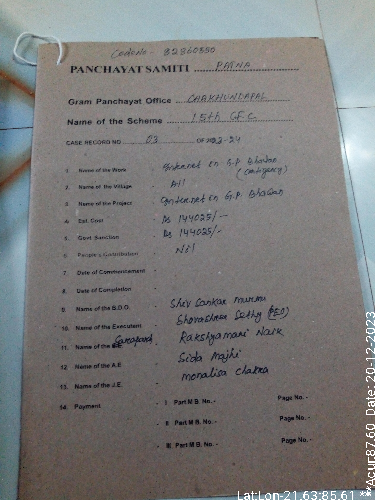 Code No - 82860550
PANCHAYAT SAMITI PATNA
Gram Panchayat Office CHAKHUNDAPAL
Name of the Scheme 15th CFC
CASE RECORD NO 03 OF 2023-24
1 Name of the Work Internet in G.P Bhawan
(contigency)
2. Name of the Village All
3. Name of the Project Internet in G.P Bhawan
4. Est. Cost Rs 144025/-
5. Govt. Sanction Rs 144025/-
6 People's Contribution Nil
7. Date of Commencement -
8. Date of Completion -
9. Name of the B.D.O. Shiv Sankar Murmu
10. Name of the Executent Setty (PEO)
11. Name of the Sarapanch Rakshyamani Naik
12 Name of the A.E Sida Majhi
13. Name of the J.E. Monalisa Chakra
14. Payment - I Part M B. No.- Page No. -
- II Part M B. No.- Page No. -
- III Part M B. No.- Page No. -
Lat:Lon-21.63:85.61
**Acur87.60 Date: 20-12-2023